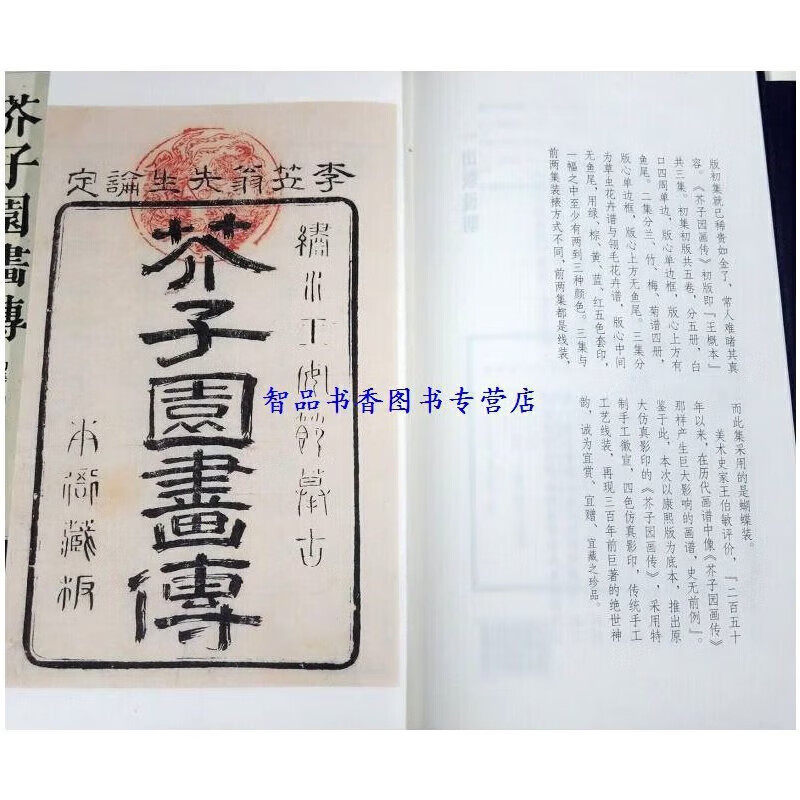 芥子園畫傳
李笠翁先生論定
繡水王安節摹古
芥子園畫傳
本衙藏板
智品书香图书专营店
版初集就已稀贵如金了，常人难睹其真
容。《芥子园画传》初版即『王概本』
共三集。初集初版共五卷，分五册，白
口四周单边，版心单边框，版心上方有
鱼尾。二集分兰、竹、梅、菊谱四册，
版心单边框，版心上方无鱼尾。三集分
为草虫花卉谱与翎毛花卉谱，版心中间
无鱼尾，用绿、棕、黄、蓝、红五色套印，
一幅之中至少有两到三种颜色。三集与
前两集装裱方式不同，前两集都是线装，
而此集采用的是蝴蝶装。
美术史家王伯敏评价，『二百五十
年以来，在历代画谱中像《芥子园画传》
那样产生巨大影响的画谱，史无前例』。
鉴于此，本次以康熙版为底本，推出原
大仿真影印的《芥子园画传》，采用特
制手工徽宣，四色仿真影印，传统手工
工艺线装，再现三百年前巨著的绝世神
韵，诚为宜赏、宜赠、宜藏之珍品。